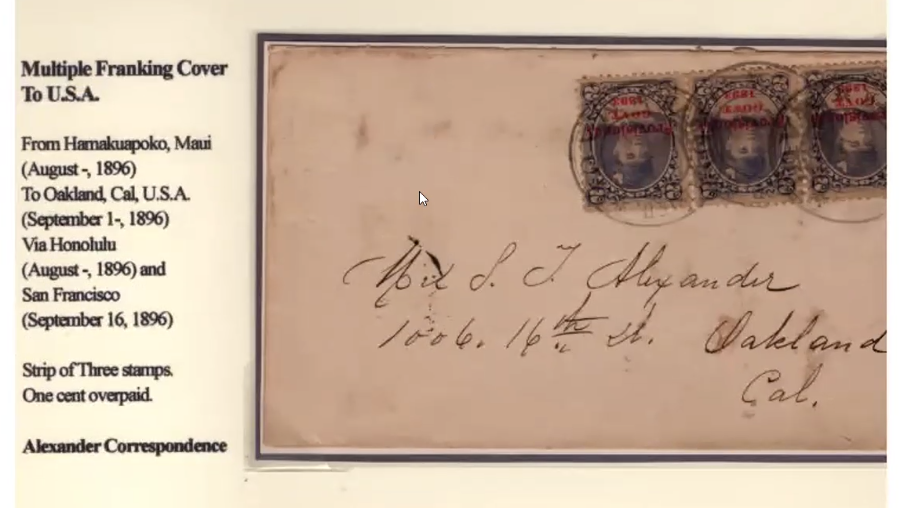 Multiple Franking Cover
To U.S.A.
From Hamakuapoko, Maui
(August -, 1896)
To Oakland, Cal, U.S.A.
(September 1-, 1896)
Via Honolulu
(August -, 1896) and
San Francisco
(September 16, 1896)
Strip of Three stamps.
One cent overpaid.
Alexander Correspondence
Provisional Provisional Provisional
GOVT. GOVT. GOVT.
1893 1893 1893
S. T. Alexander
1006. 16th St. Oakland
Cal.